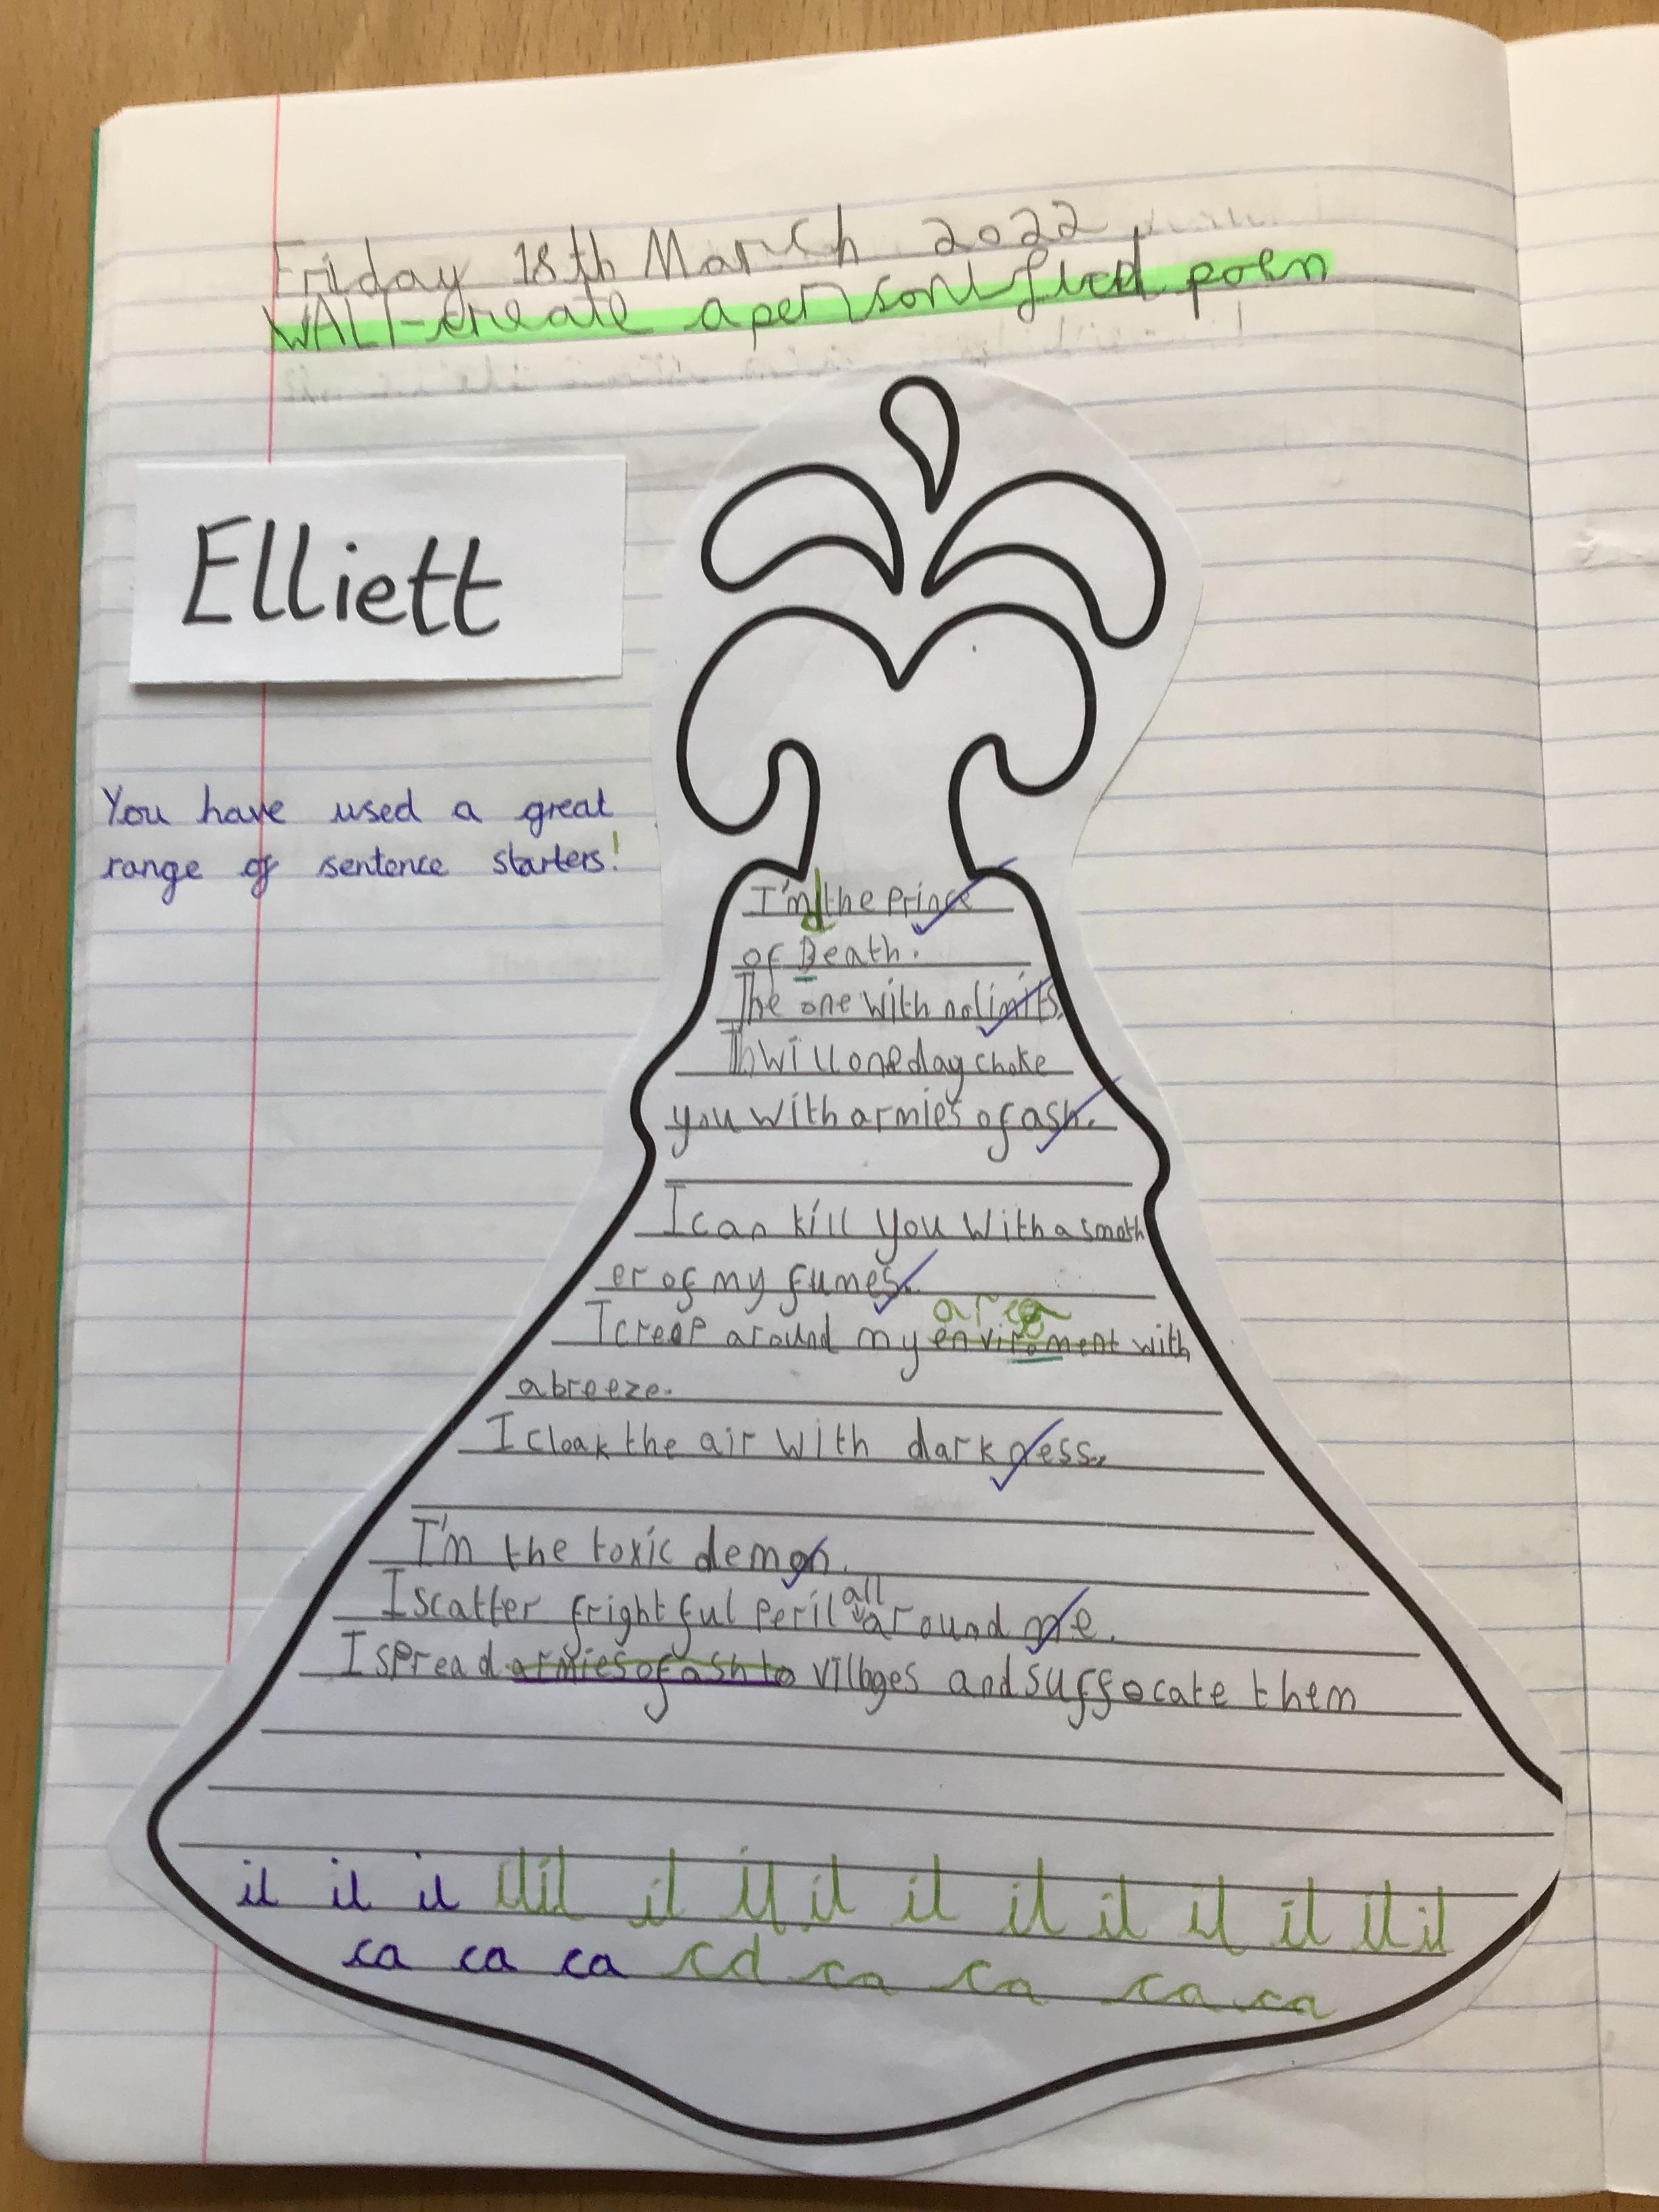 Friday 18th March 2022
WALT-create a personified poem
Elliett
You have used a great
range of sentence starters!
I'm the Prince
of Death.
The one with no limits.
Th will one day choke
you with armies of ash.
I can kill you with a smoth
er of my fumes.
area
I creep around my enviroment with
a breeze.
I cloak the air with darkness.
I'm the toxic demon.
I scatter frightful peril all around me.
I spread armies of ash to villages and suffocate them
il il il il il il il il il il il il il il il
ca ca ca ca ca ca ca ca